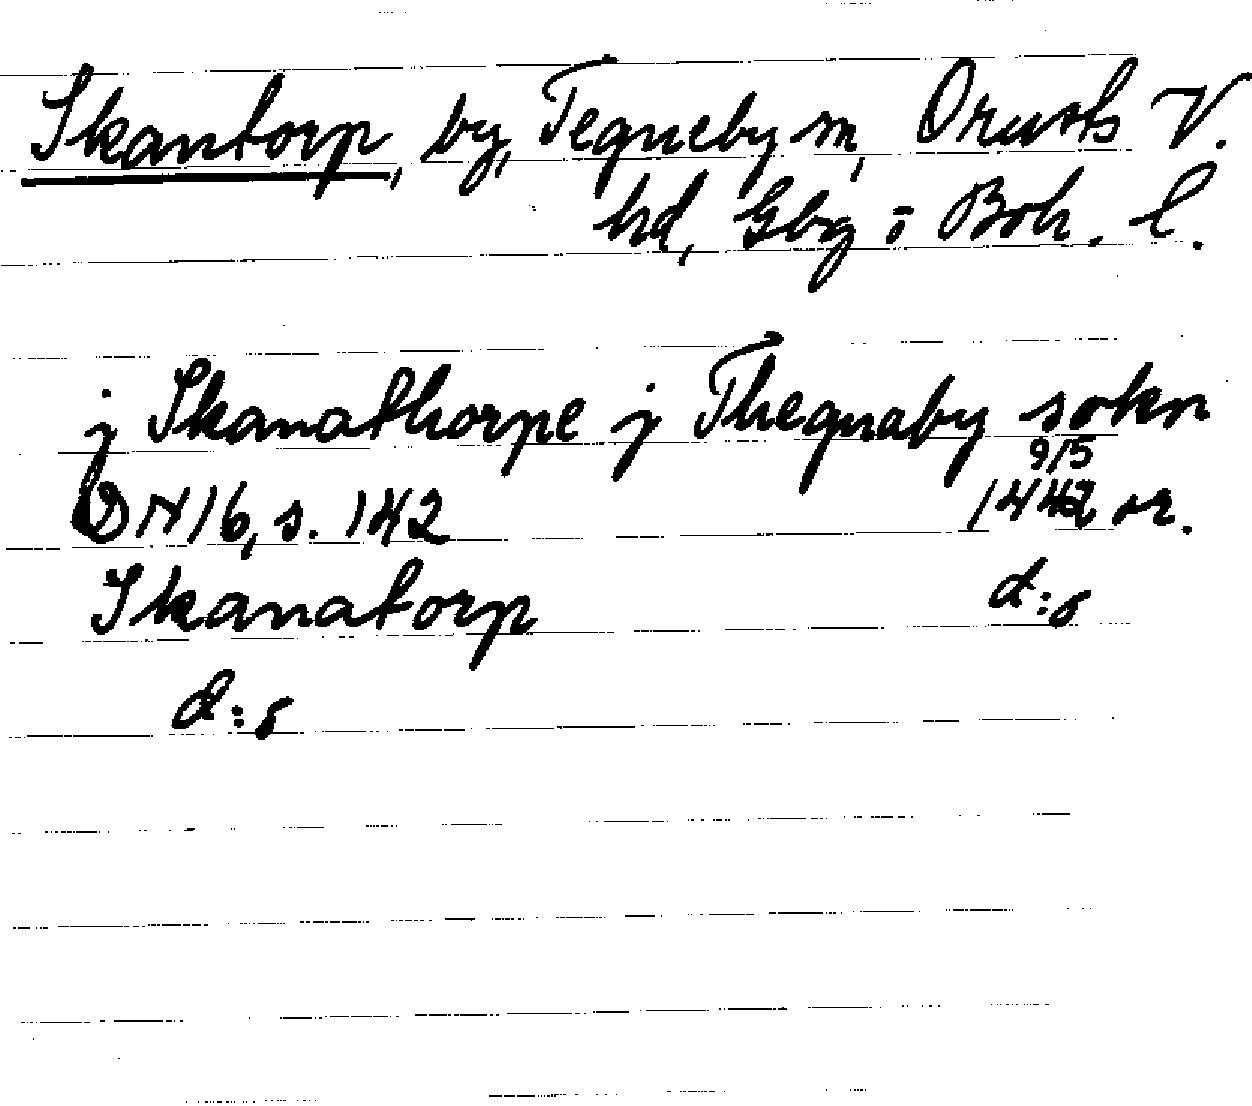 Skantorp, by, Tegneby sn, Orusts V.
hd, Gbg o Boh. l.
j Skanathorpe j Thegnaby sokn
9/5
DN 16, s. 142 1442 or.
Skanatorp d:o
d:o